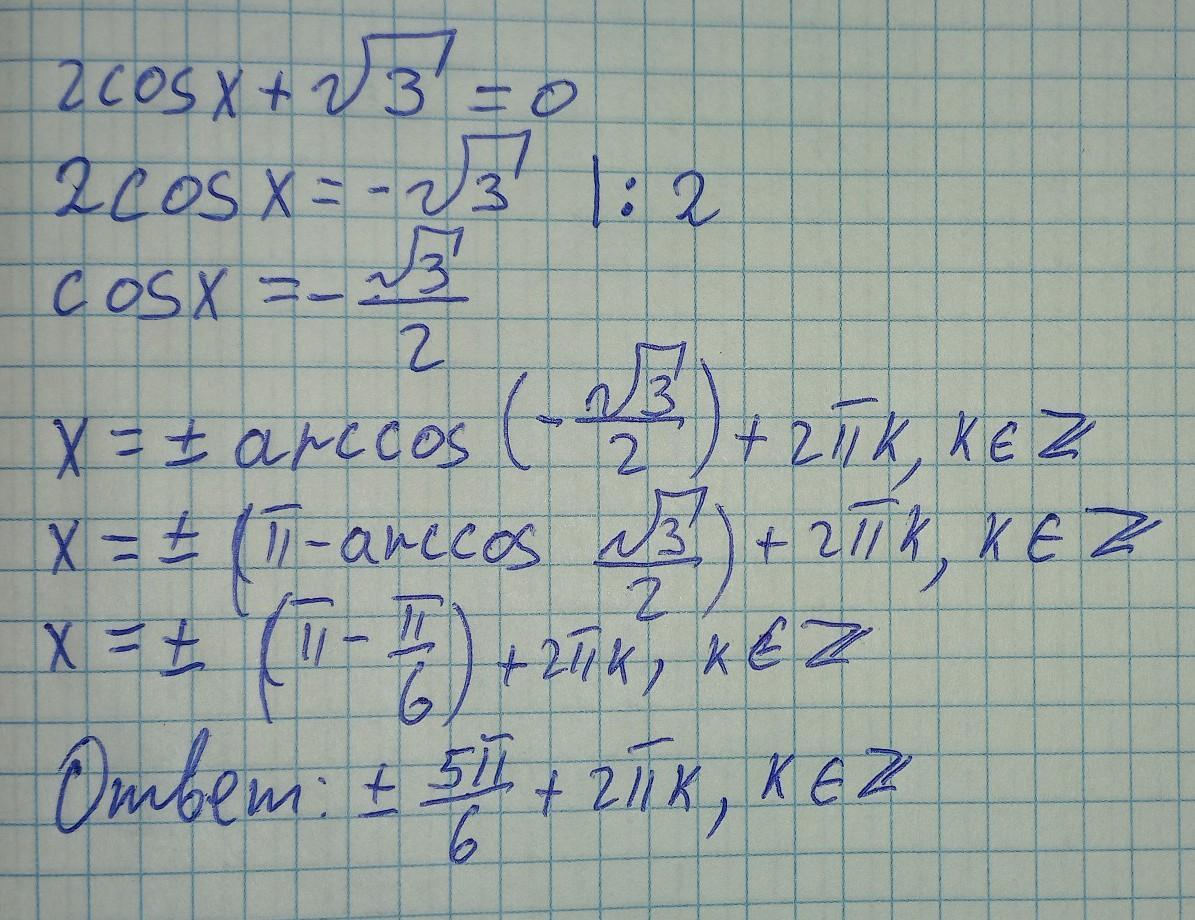 2cosx+√3=0
2cosx=-√3 |:2
cosx=-√3/2
x=±arccos(-√3/2)+2πk, k∈Z
x=±(π-arccos √3/2)+2πk, k∈Z
x=±(π-π/6)+2πk, k∈Z
Ответ: ±5π/6+2πk, k∈Z